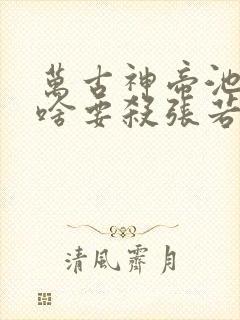 萬古神帝池
啥要殺張若
清風霽月